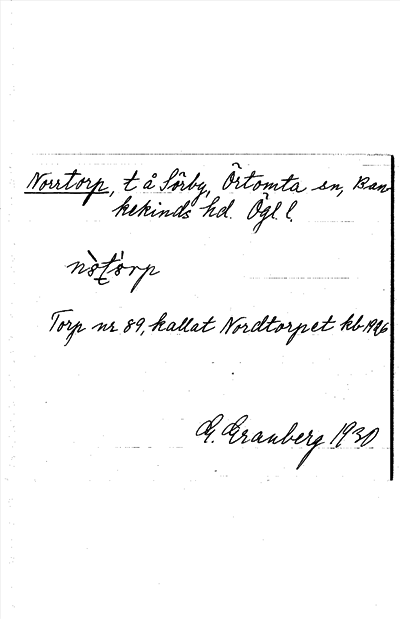 Norrtorp, t å Sörby, Örtomta sn, Ban-
kekinds hd. Ögl. l.
Torp nr 89, kallat Nordtorpet kb
G. Granberg 1930